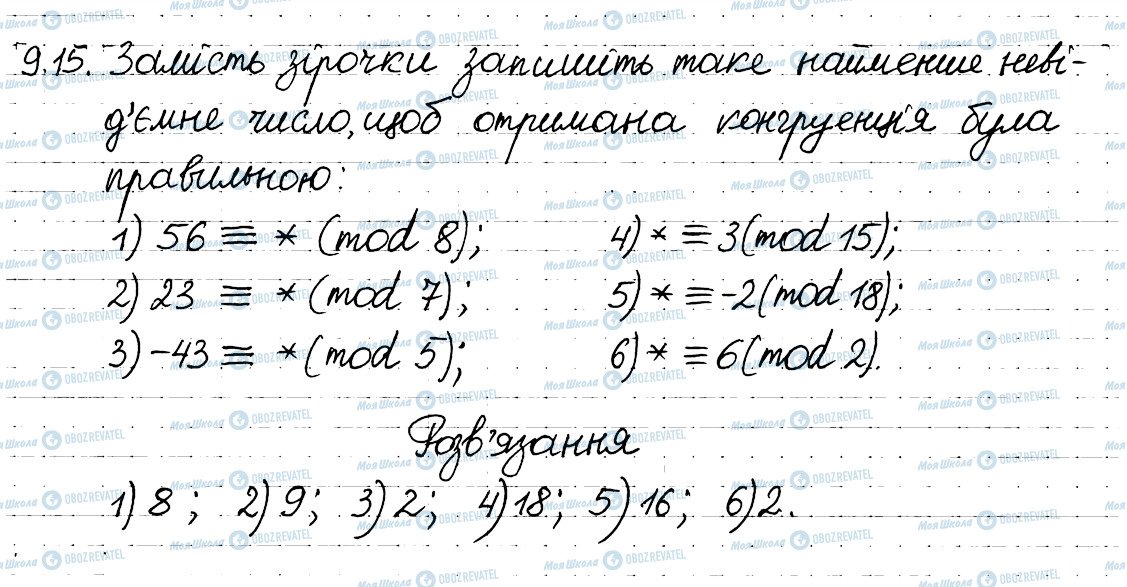 9.15. Замість зірочки запишіть таке найменше неві-
д'ємне число, щоб отримана конгруенція була
правильною:
1) 56 ≡ * (mod 8); 4) * ≡ 3 (mod 15);
2) 23 ≡ * (mod 7); 5) * ≡ -2 (mod 18);
3) -43 ≡ * (mod 5); 6) * ≡ 6 (mod 2).
Розв'язання
1) 8; 2) 9; 3) 2; 4) 18; 5) 16; 6) 2.
МояШкола OBOZREVATEL